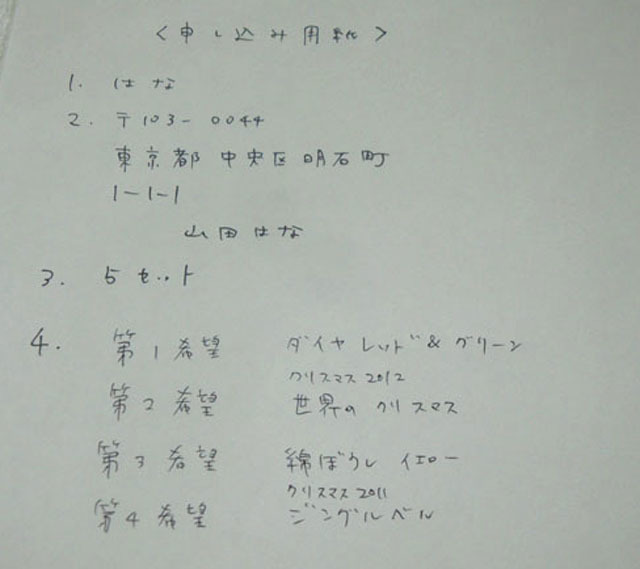 <申し込み用紙>
1. はな
2. 〒103-0044
東京都 中央区 明石町
1-1-1
山田はな
3. 5セット
4. 第1希望 ダイヤ レッド&グリーン
クリスマス2012
第2希望 世界の クリスマス
第3希望 綿ぼうし イエロー
クリスマス2011
第4希望 ジングルベル